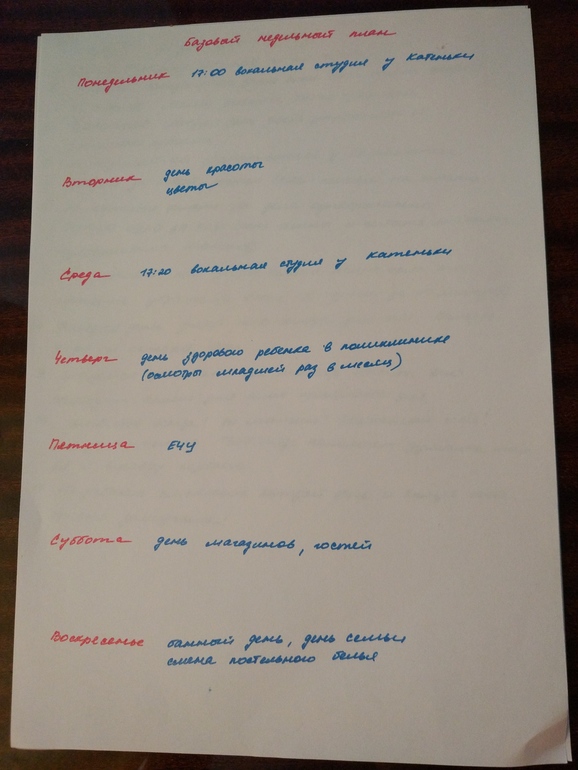 Базовый недельный план
Понедельник 17:00 вокальная студия у Катеньки
Вторник день красоты
цветы
Среда 17:20 вокальная студия у Катеньки
Четверг день здорового ребенка в поликлинике
(осмотры младшей раз в месяц)
Пятница ЕЧУ
Суббота день магазинов, гостей
Воскресенье банный день, день семьи
смена постельного белья